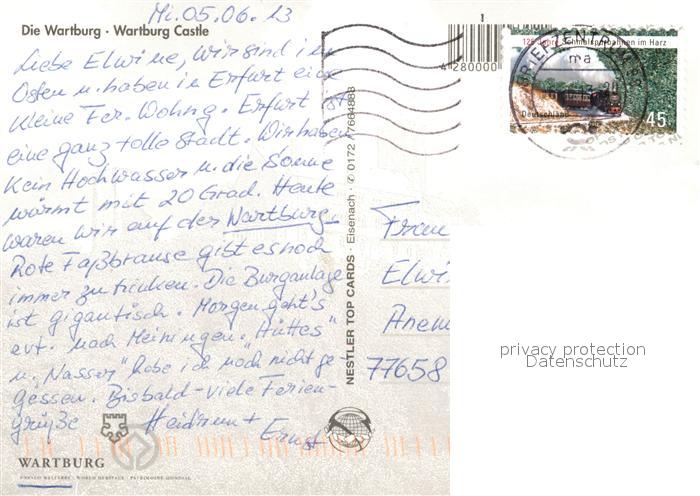 Mi. 05.06.13
Die Wartburg · Wartburg Castle
Liebe Elwine, wir sind im
Osten u. haben in Erfurt eine
kleine Fer. Wohng. Erfurt ist
eine ganz tolle Stadt. Wir haben
kein Hochwasser u. die Sonne
wärmt mit 20 Grad. Heute
waren wir auf der Wartburg.
Rote Faßbrause gibt es noch
immer zu trinken. Die Burganlage
ist gigantisch. Morgen geht's
evt. nach Meiningen. "Hüttes"
u. "Nasser" habe ich noch nicht ge
gessen. Bisbald - viele Ferien-
grüße Heidrun +
Ernst
WARTBURG
UNESCO WELTERBE · WORLD HERITAGE · PATRIMOINE MONDIAL
NESTLER TOP CARDS · Eisenach · ✆ 0172 77664888
1
4 280000
BRIEFZENTRUM
ma
125 Jahre Schmalspurbahnen im Harz
Deutschland
45
Frau
Elwi
Anem
77658
privacy protection
Datenschutz